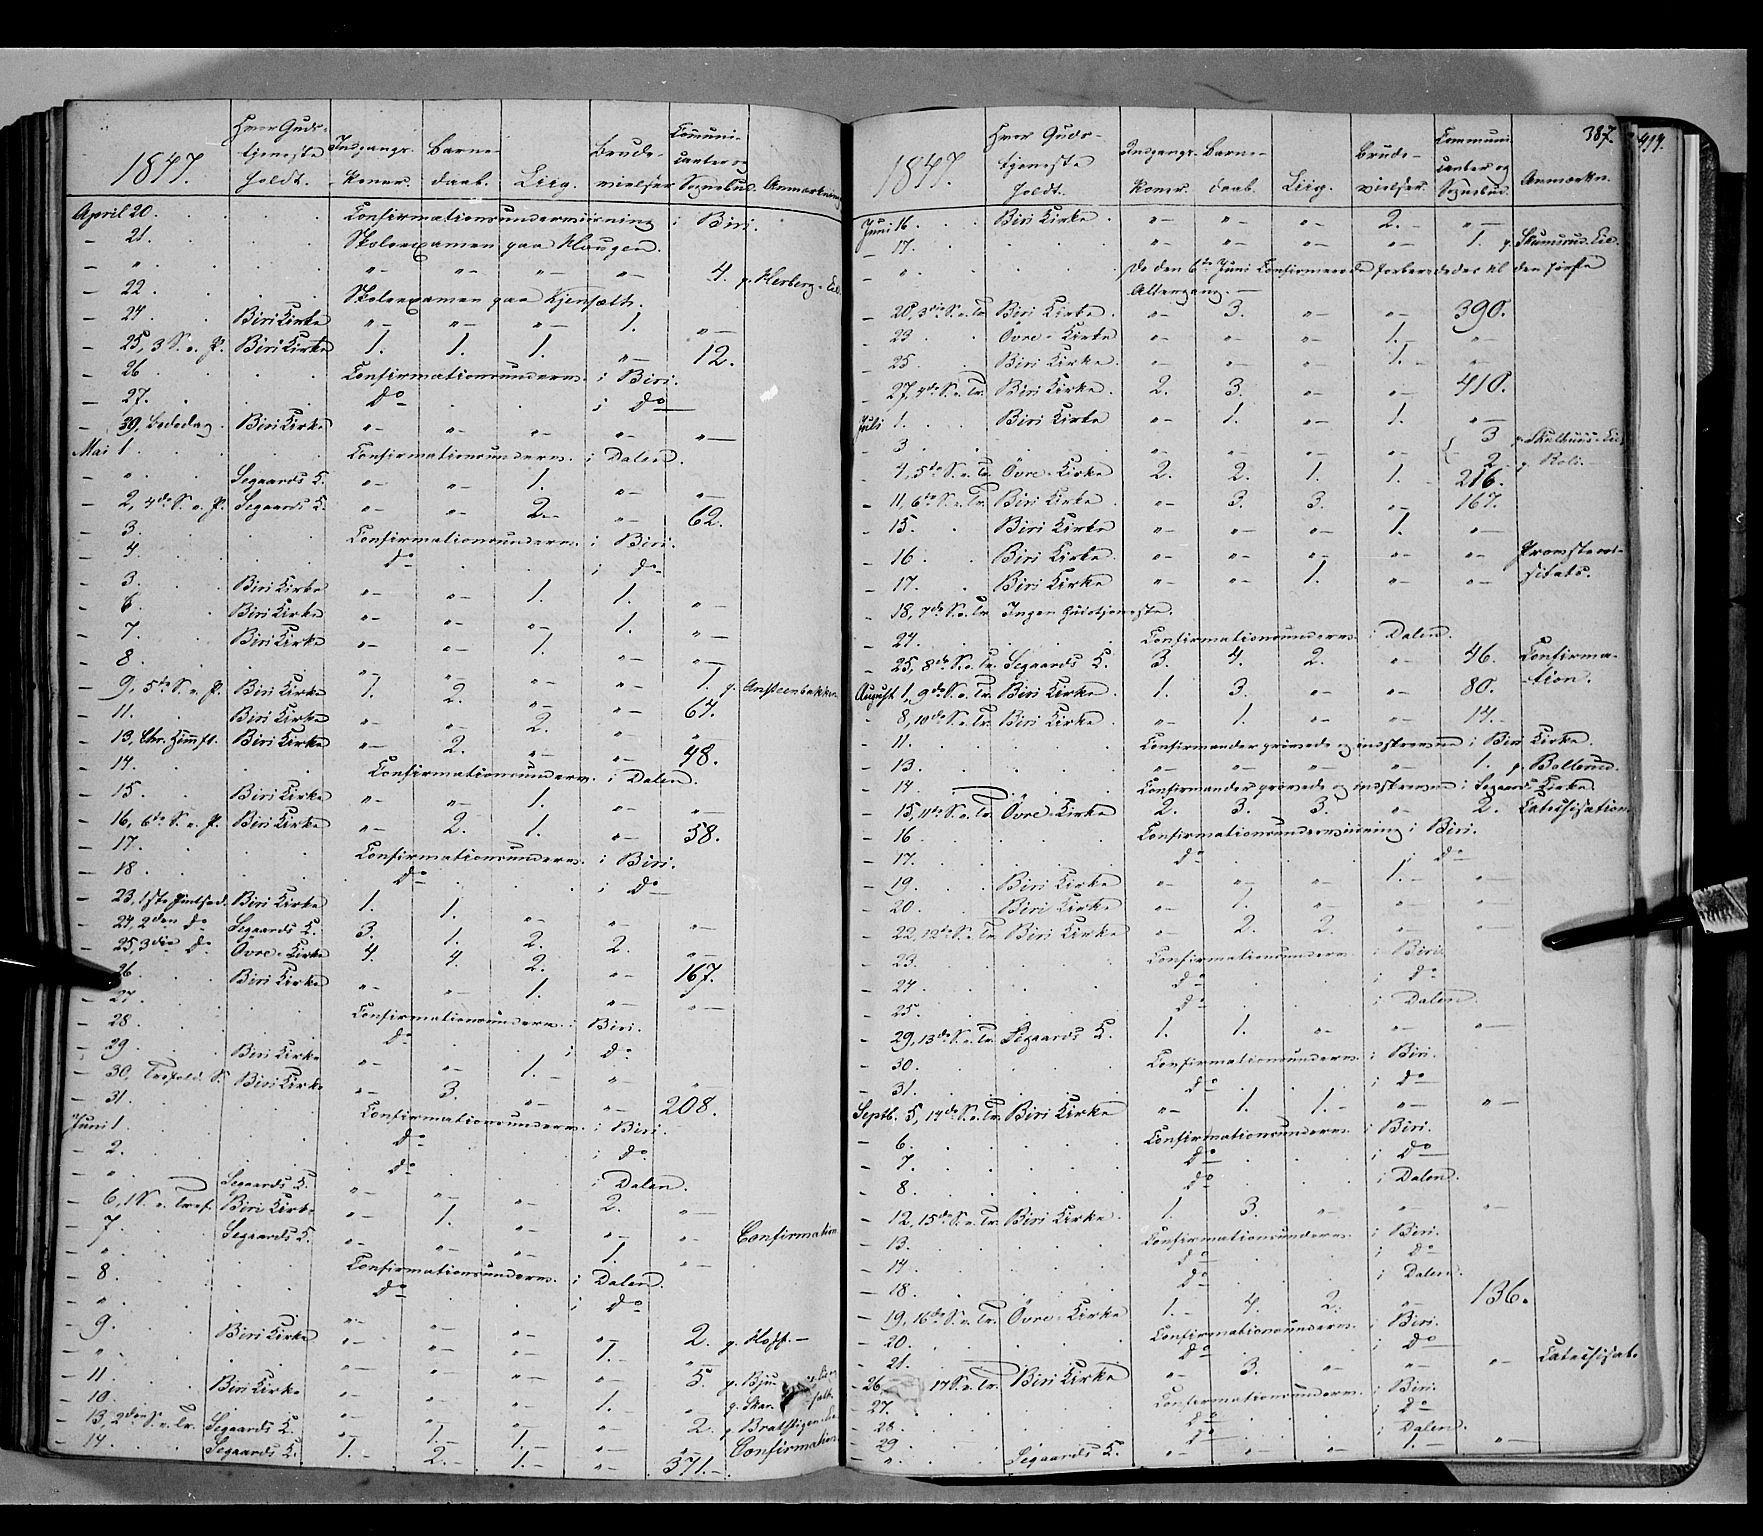 1847. Hvor Guds- tjeneste holdt. Indgangs- Koner. Barne- daab. Liig. Brude- vielser Communi- canter og Sognebud. Anmærkning
April 20. Confirmationsunderviisning i Biri.
- 21. Skoleexamen paa Haugen.
- " "- "- "- "- 4. p. Herberg-Eie
- 22. Skoleexamen paa Kjensæth.
- 24. Biri Kirke "- "- "- 1. "-
- 25, 3 S. e. P. Biri Kirke 1. 1. 1. "- 12.
- 26. Confirmationsunderv. i Biri.
- 27. do i do
- 30, Bededag. Biri Kirke "- "- "- "- "-
Mai 1. Confirmationsunderv. i Dalen.
- " Segaards K. "- "- 1. "- "-
- 2, 4de S. e. P. Segaards K. "- "- 2. "- 62.
- 3. Confirmationsunderv. i Biri.
- 4. do i do
- 3. Biri Kirke "- "- 1. 1. "-
- 6. Biri Kirke "- "- "- 1. "-
- 7. Biri Kirke "- "- 1. "- "-
- 8. "- "- "- "- 1. p.
- 9, 5te S. e. P. Biri Kirke 1. 2. "- "- 64.
- 11. Biri Kirke "- "- 2. "- "
- 13, Chr. Himft. Biri Kirke "- 2. "- "- 48.
- 14. Confirmationsunderv. i Dalen.
- 15. Biri Kirke "- "- 1. "- "-
- 16, 6te S. e. P. Biri Kirke "- 2. 1. "- 58.
- 17. Confirmationsunderv. i Biri.
- 18. do i do
- 23, 1ste Pintsed. Biri Kirke 1. 1. "- "- "-
- 24, 2den do Segaards K. 3. 1. 2. 2. "-
- 25, 3die do Øvre-Kirke 4. 4. 2. "- 167.
- 26. Biri Kirke "- "- 1. "- "-
- 27. Confirmationsunderv. i Biri.
- 28. do i do
- 29. Biri Kirke "- "- 1. "- "-
- 30, Trefold. S. Biri Kirke "- 3. "- "- 208.
- 31. Confirmationsunderv. i Biri.
Juni 1. do i do
- 2. do i Dalen.
- " Segaards K. "- "- "- 2. "-
- 6, 1 S. e. Tref. Biri Kirke "- 1. "- "- "- Confirmation
- 7. Segaards K. "- "- "- 1. "-
- " Confirmationsunderv. i Dalen.
- 8. do i do
- " "- "- "- "- 2. p. Hoff.-
- 9. Biri Kirke "- "- "- 1. "-
- " "- "- "- "- 5. p. Bju
- 11. Biri Kirke "- "- "- 1. "- p. Skar
- 10. "- "- "- "- 2. p. Bratstigen-Eie
- 13, 2den S. e. Tr. Segaards K. "- 1. 1. "- "- Confirmation
- 14. Segaards K. 1. 2. 1. "- 371.
387. 419.
1847. Hvor Guds- tjeneste holdt. Indgangs- Koner. Barne- daab. Liig. Brude- vielser. Communi- canter og Sognebud. Anmærkn.
Juni 16. Biri Kirke "- "- "- 2. "-
- 17. "- "- "- "- 1. p. Skumsrud-Eie.
- " De den 6te Juni Confirmerede forberededes til den første
Altergang.-
- 20, 3die S. e. Tr. Biri Kirke "- 3. "- "- 390.
- 23. Øvre-Kirke "- "- "- 1. "-
- 25. Biri Kirke "- "- "- 1. "-
- 27, 4de S. e. Tr. Biri Kirke 2. 3. "- "- 410.
Juli 1. Biri Kirke "- 1. "- 1. "-
- 3. "- "- "- "- 3
2
- 4, 5te S. e. Tr. Øvre-Kirke 2. 2. 1. 1. 216.
- 11, 6te S. e. Tr. Biri Kirke "- 3. 3. "- 167.
- 15. Biri Kirke "- "- "- 1. "-
- 16. Biri Kirke "- "- "- "- "- Provstevi-
- 17. Biri Kirke "- "- 1. "- "- sitats.
- 18, 7de S. e. Tr. Ingen Gudstjeneste.
- 24. Confirmationsunderv. i Dalen.
- 25, 8de S. e. Tr. Segaards K. 3. 4. 2. "- 46. Confirma-
August 1, 9de S. e. Tr. Biri Kirke 1. 3. "- "- 80. -tion.
- 8, 10de S. e. Tr. Biri Kirke "- 1. "- "- 14.
- 11. Confirmander prøvede og indskrevne i Biri Kirke.
- 13. "- "- "- "- 1. p. Ballerud.
- 14. Confirmander prøvede og indskrevne i Segaards Kirke.
- 15, 11te S. e. Tr. Øvre-Kirke 2. 3. 3. "- 2. Catechisation.
- 16 Confirmationsunderviisning i Biri.
- 17. do i do
- 19. Biri Kirke "- "- "- 1. "-
- 20. Biri Kirke "- 1. "- "- "-
- 22, 12te S. e. Tr. Biri Kirke "- 2. 2. "- "-
- 23. Confirmationsunderv. i Biri.
- 24. do i do
- 25. do i Dalen.
- 29, 13de S. e. Tr. Segaards K. 1. 1. "- "- "-
- 30. Confirmationsunderv. i Biri.
- 31. do i do
Septb. 5, 14de S. e. Tr. Biri Kirke "- 1. 1. "- "-
- 6. Confirmationsunderv. i Biri.
- 7. do i do
- 8. do i Dalen.
- 12, 15de S. e. Tr. Biri Kirke 1. 3. "- "- "-
- 13. Confirmationsunderv. i Biri.
- 14. do i do
- 18. do i Dalen.
- 19, 16de S. e. Tr. Øvre-Kirke 1. 4. 2. "- 136.
- 20. Confirmationsunderv. i Biri.
- 21. do i do
- 26. 17 S. e. Tr. Biri Kirke "- 3. "- "- "- Catechisat.
- 27. Confirmationsunderv. i Biri.
- 28. do i do
- 29. do i Dalen.
- " Segaards K. "- "- "- 1. "-